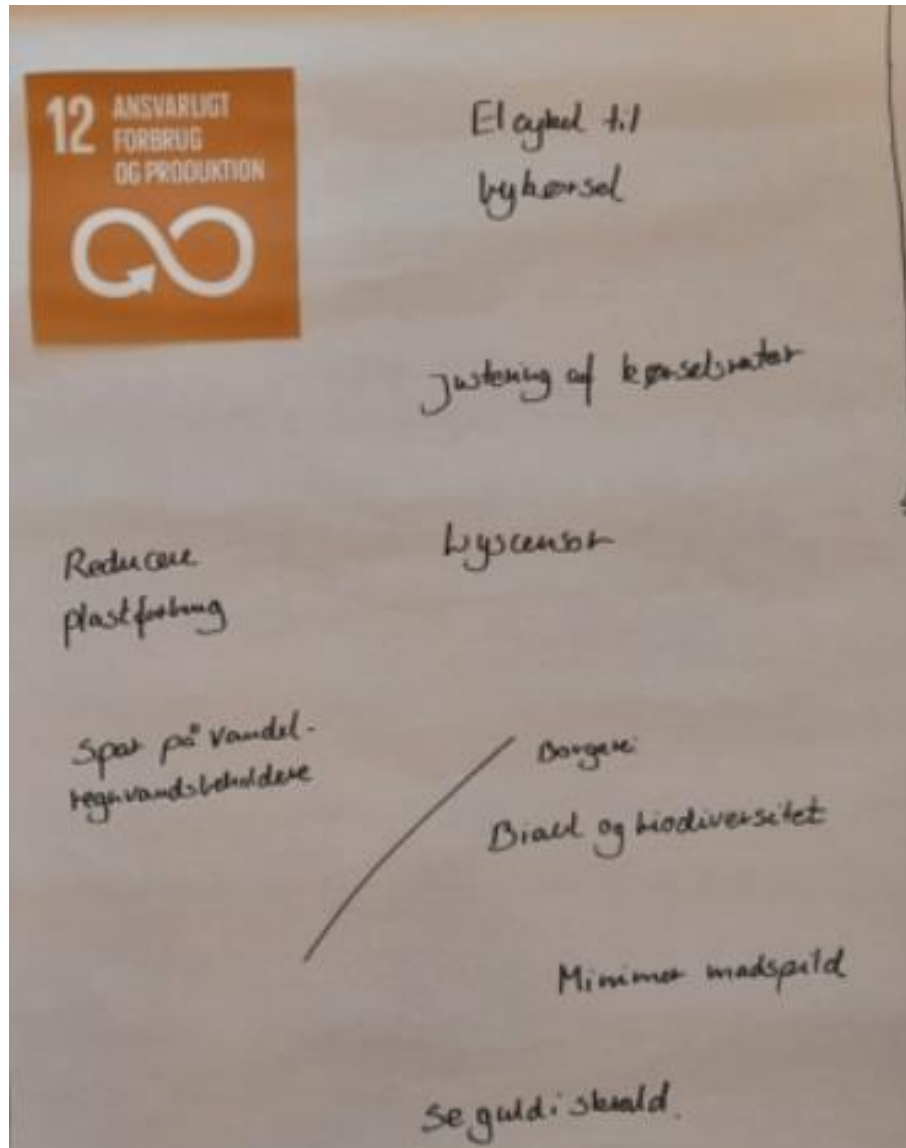 12 ANSVARLIGT
FORBRUG
OG PRODUKTION
El cykel til
bykørsel
Justering af kørselsruter
Lyscensor
Reducere
plastforbrug
Spar på vandet -
regnvandsbeholdere
Borgere:
Biavl og biodiversitet
Minimer madspild
Se guld i skrald.